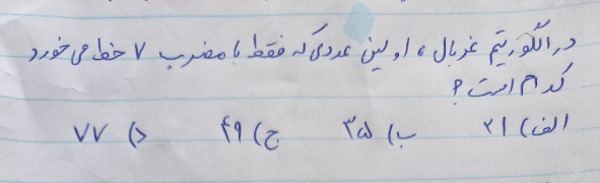 در الگوریتم غربال، اولین عددی که فقط با مضرب ۷ خط می خورد
کدام است؟
الف) ۲۱ ب) ۳۵ ج) ۴۹ د) ۷۷